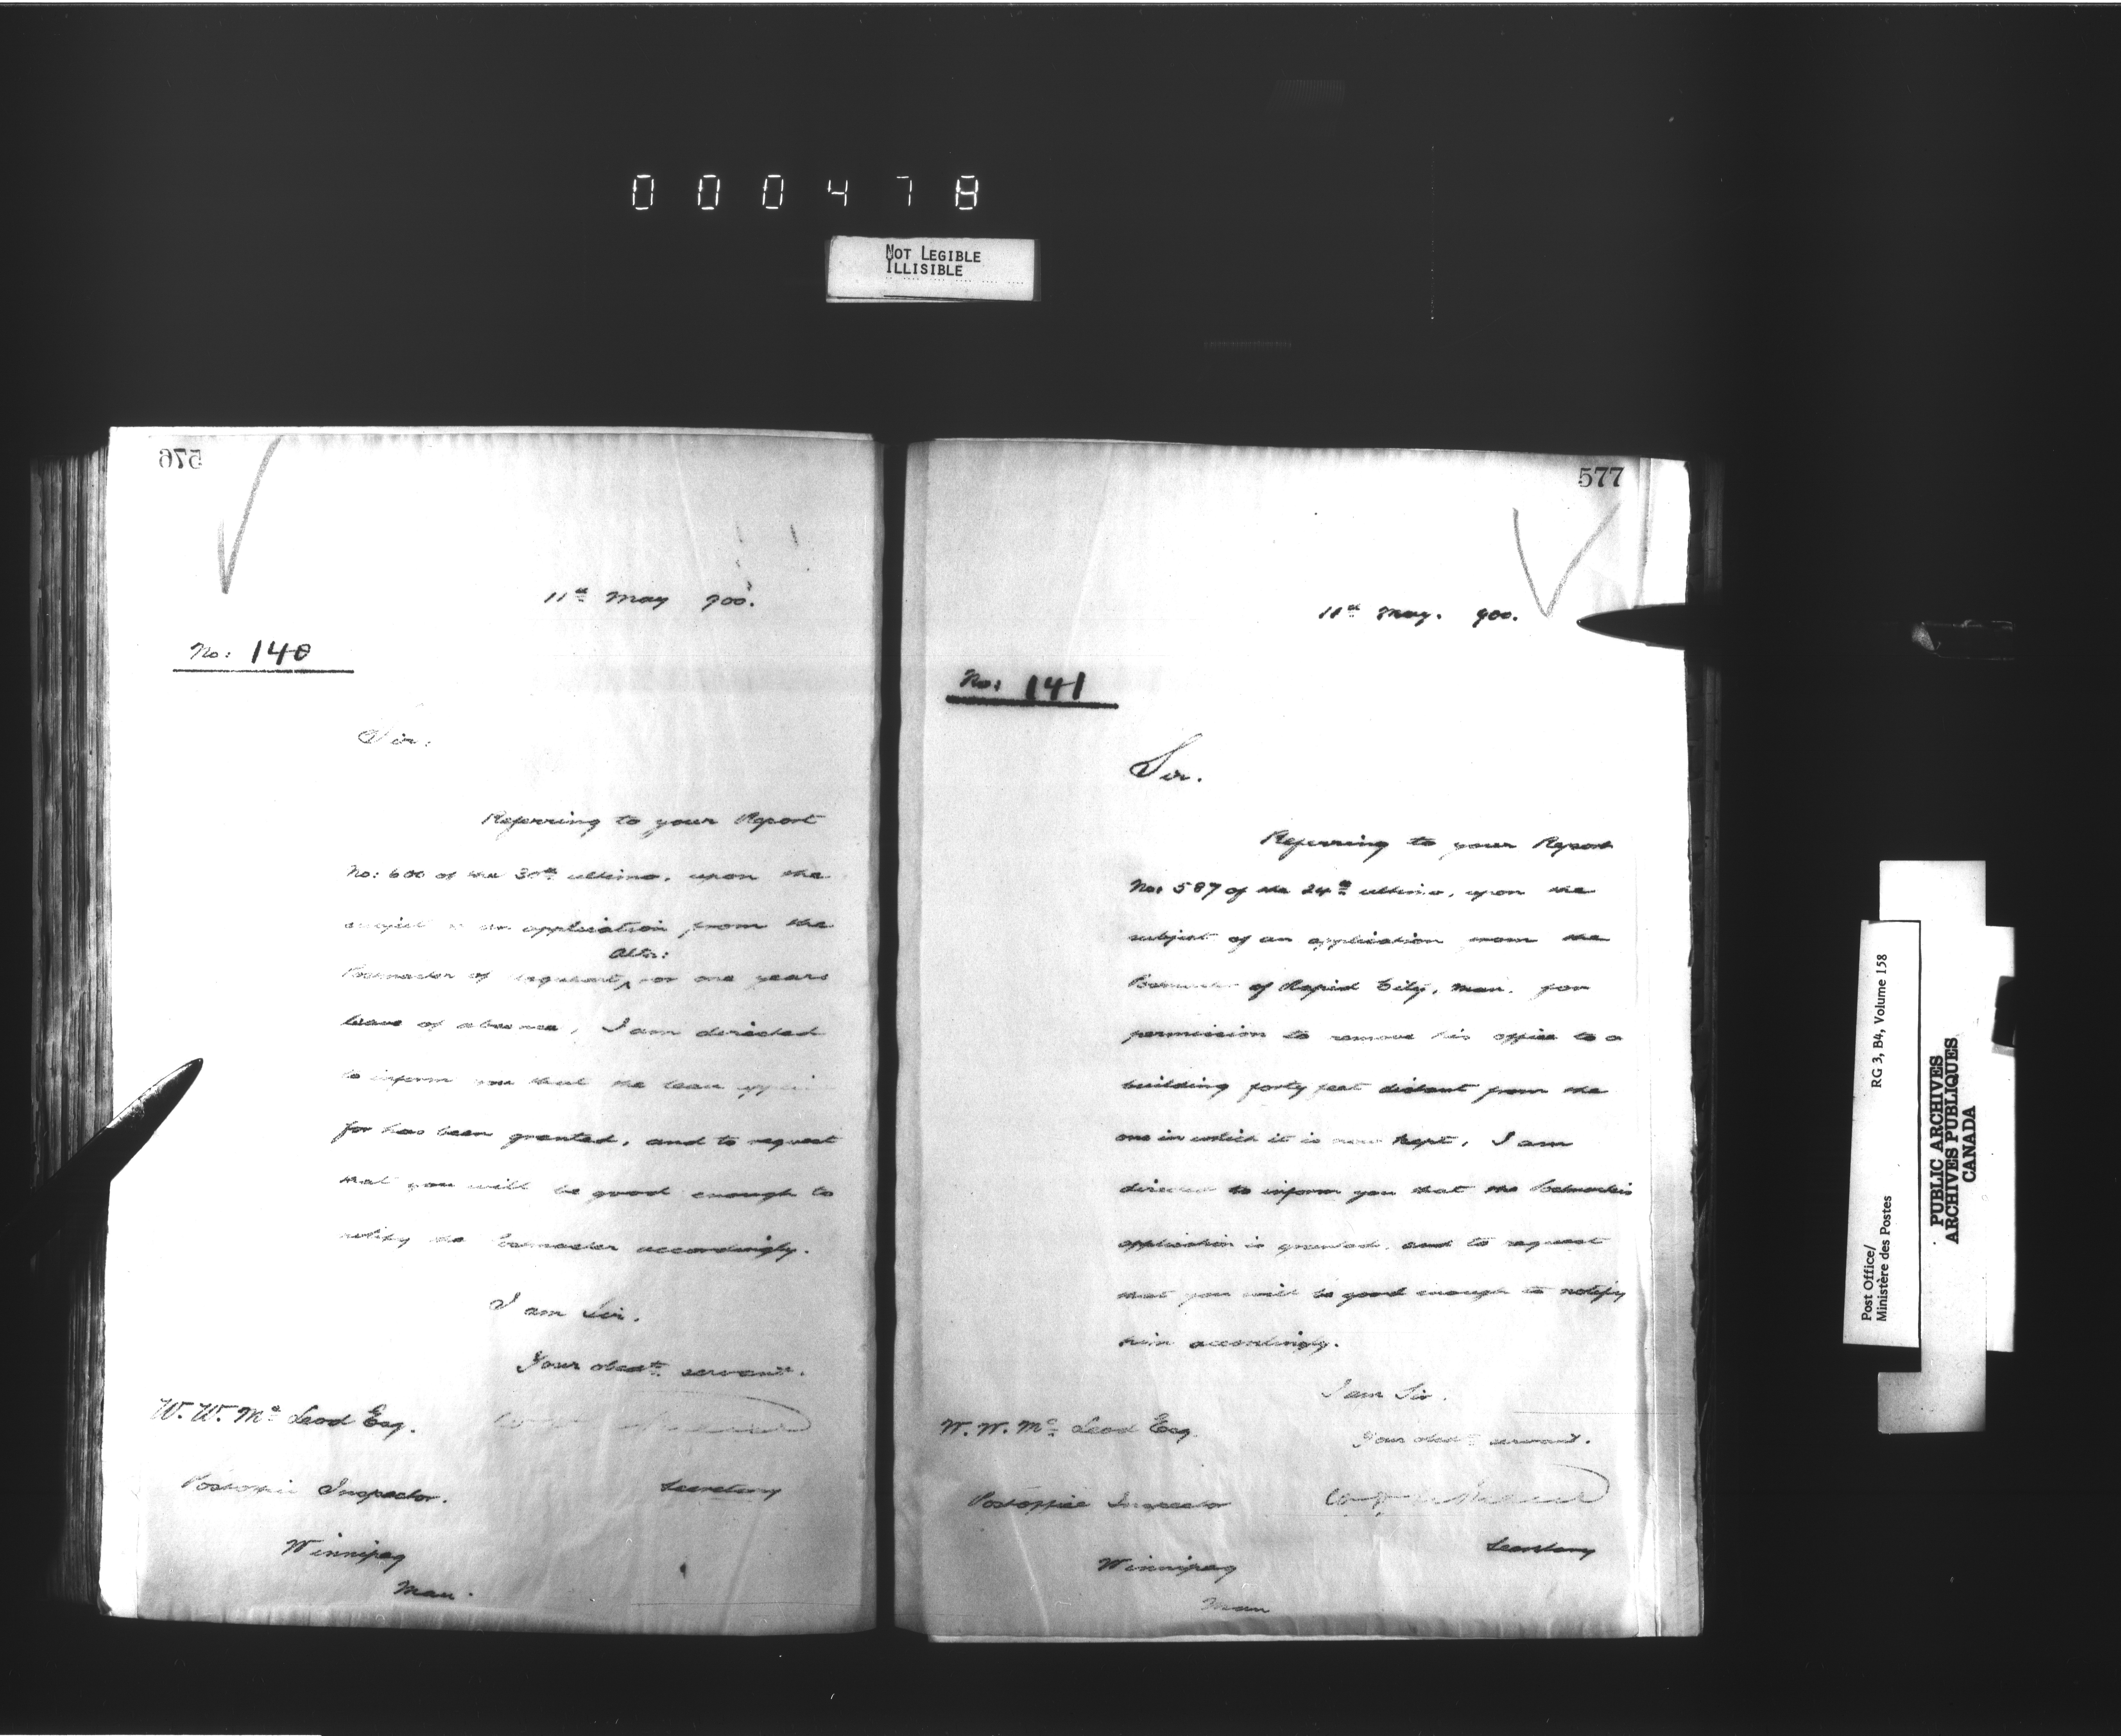 000478
NOT LEGIBLE
ILLISIBLE
576
11th May 900.
No: 140
Sir:
Referring to your Report
No: 600 of the 30th ultimo, upon the
subject of an application from the
Assa:
Postmaster of for one years
leave of absence, I am directed
to inform you that the leave applied
for has been granted, and to request
that you will be good enough to
notify the Postmaster accordingly.
I am Sir.
Your obedt. servant.
W. W. Mc Leod Esq.
Postoffice Inspector.
Secretary
Winnipeg
Man.
577
11th May. 900.
No: 141
Sir.
Referring to your Report
No: 587 of the 24th ultimo, upon the
subject of an application from the
Postmaster of Rapid City, Man. for
permission to remove his office to a
building forty feet distant from the
one in which it is now kept, I am
directed to inform you that the Postmaster's
application is granted, and to request
that you will be good enough to notify
him accordingly.
I am Sir.
Your obedt. servant.
W. W. Mc Leod Esq.
Postoffice Inspector
Secretary
Winnipeg
Man
Post Office/
Ministère des Postes
RG 3, B4, Volume 158
PUBLIC ARCHIVES
ARCHIVES PUBLIQUES
CANADA